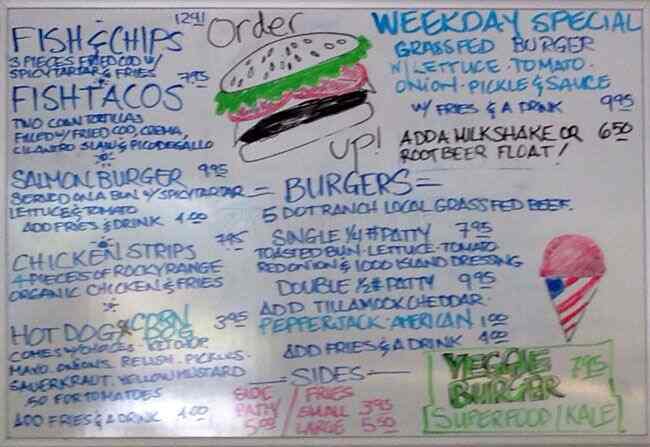 FISH & CHIPS 12.91
3 PIECES FRIED COD W/
SPICY TARTAR & FRIES
FISH TACOS 7.95
TWO CORN TORTILLAS
FILLED W/ FRIED COD, CREMA,
CILANTRO SLAW & PICO DE GALLO
SALMON BURGER 9.95
SERVED ON A BUN W/ SPICY TARTAR
LETTUCE & TOMATO
ADD FRIES & DRINK 4.00
CHICKEN STRIPS 7.95
4 PIECES OF ROCKY RANGE
ORGANIC CHICKEN & FRIES
HOT DOG & CORN DOG 3.95
COMES W/ CHOICES KETCHUP
MAYO. ONIONS. RELISH. PICKLES.
SAUERKRAUT. YELLOW MUSTARD
.50 FOR TOMATOES
ADD FRIES & A DRINK 4.00
Order
UP!
WEEKDAY SPECIAL
GRASSFED BURGER
W/ LETTUCE · TOMATO ·
ONION · PICKLE & SAUCE
W/ FRIES & A DRINK 9.95
ADD A MILKSHAKE OR 6.50
ROOTBEER FLOAT!
= BURGERS =
5 DOT RANCH LOCAL GRASSFED BEEF.
SINGLE 1/4 # PATTY 7.95
TOASTED BUN · LETTUCE · TOMATO
RED ONION & 1000 ISLAND DRESSING
DOUBLE 1/2 # PATTY 9.95
ADD TILLAMOOK CHEDDAR ·
PEPPERJACK · AMERICAN 1.00
ADD FRIES & A DRINK 4.00
— SIDES —
SIDE PATTY 5.00
FRIES
SMALL 3.95
LARGE 5.50
VEGGIE 7.95
BURGER
SUPERFOOD / KALE